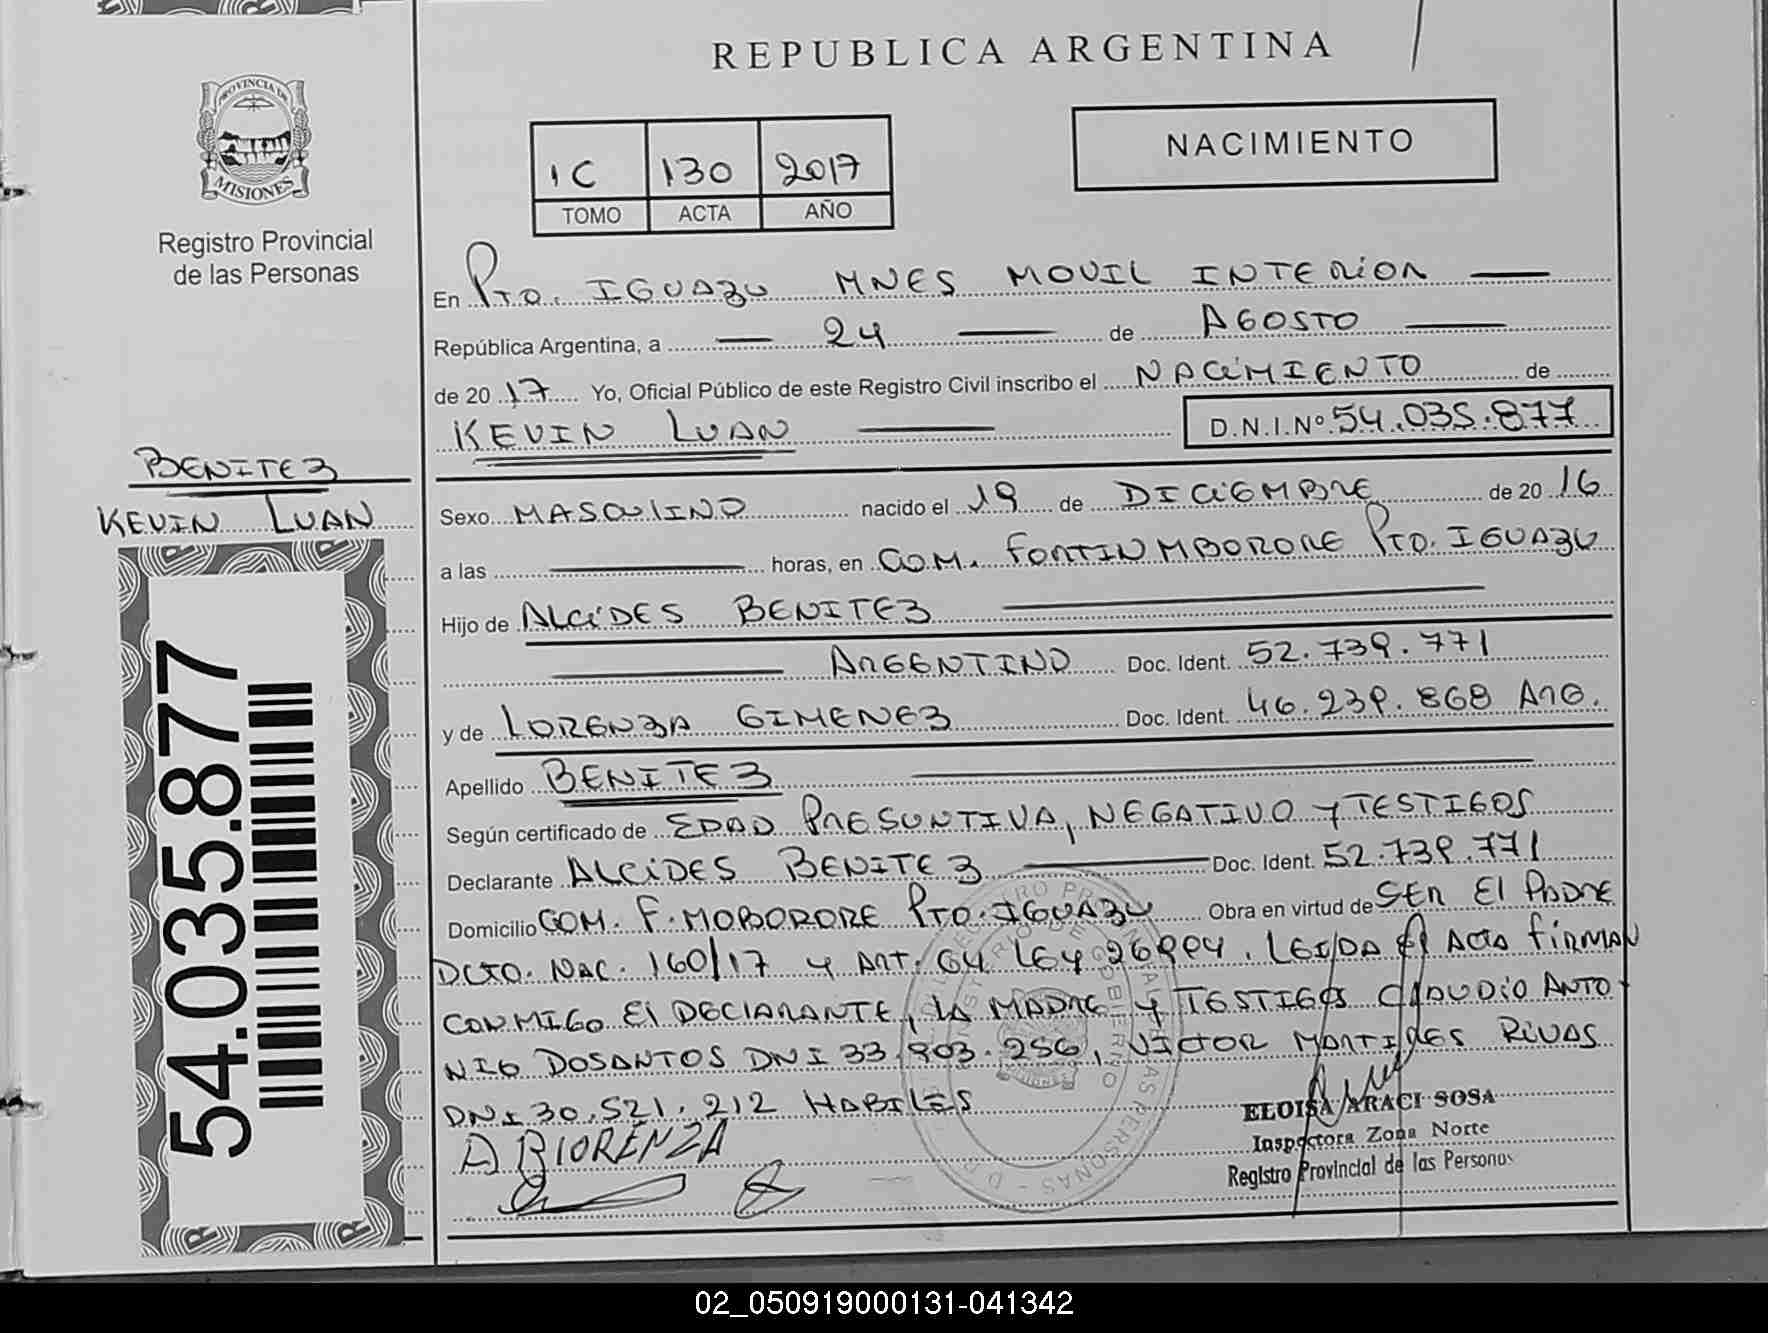 REPUBLICA ARGENTINA
PROVINCIA DE
MISIONES
Registro Provincial
de las Personas
1C 130 2017
TOMO ACTA AÑO
NACIMIENTO
En Pto. IGUAZU MNES MOVIL INTERIOR
República Argentina, a 24 de AGOSTO
de 2017 Yo, Oficial Público de este Registro Civil inscribo el NACIMIENTO de
KEVIN LUAN D.N.I.Nº 54.035.877
BENITEZ
KEVIN LUAN
54.035.877
Sexo MASCULINO nacido el 19 de DICIEMBRE de 2016
a las horas, en COM. FORTIN MBORORE Pto. IGUAZU
Hijo de ALCIDES BENITEZ
ARGENTINO Doc. Ident. 52.739.771
y de LORENZA GIMENEZ Doc. Ident. 46.239.868 ARG.
Apellido BENITEZ
Según certificado de EDAD PRESUNTIVA, NEGATIVO Y TESTIGOS
Declarante ALCIDES BENITEZ Doc. Ident. 52.739.771
Domicilio COM. F. MOBORORE Pto. IGUAZU Obra en virtud de SER El PADRE
DCTO. NAC. 160/17 y ART. 64 LEY 26994. LEIDA El ACTA FIRMAN
CONMIGO El DECLARANTE, LA MADRE Y TESTIGOS CLAUDIO ANTO
NIO DOSANTOS DNI 33.903.256, VICTOR MARTIRES RIVAS
DNI 30.521.212 HABILES
A B LORENZA
ELOISA ARACI SOSA
Inspectora Zona Norte
Registro Provincial de las Personas
02_050919000131-041342